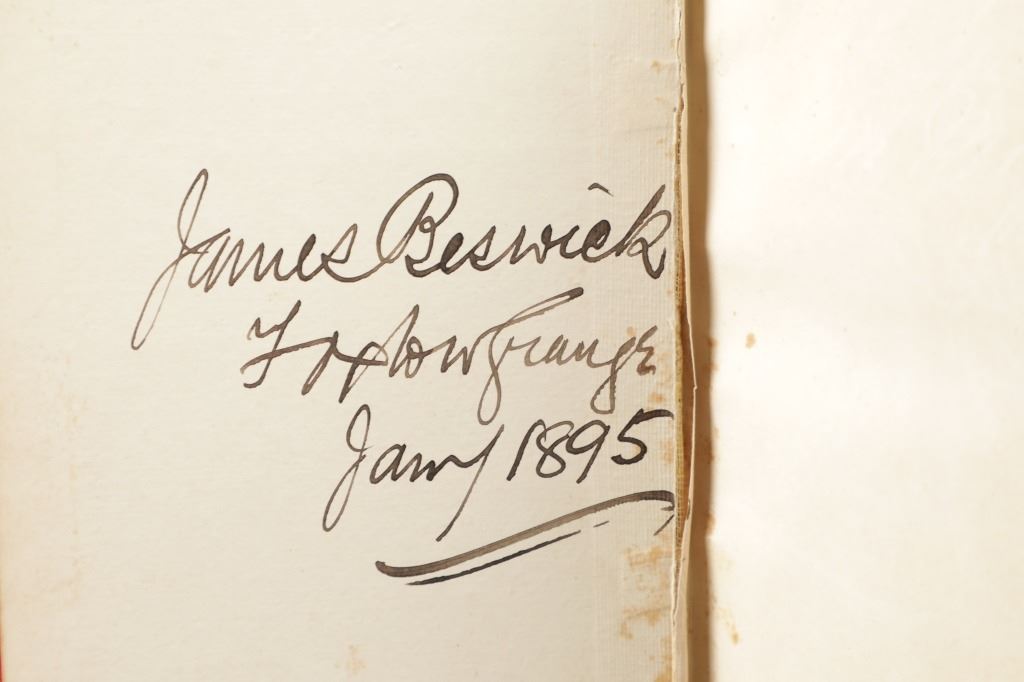 James Beswick
Foxton Grange
Jany 1895